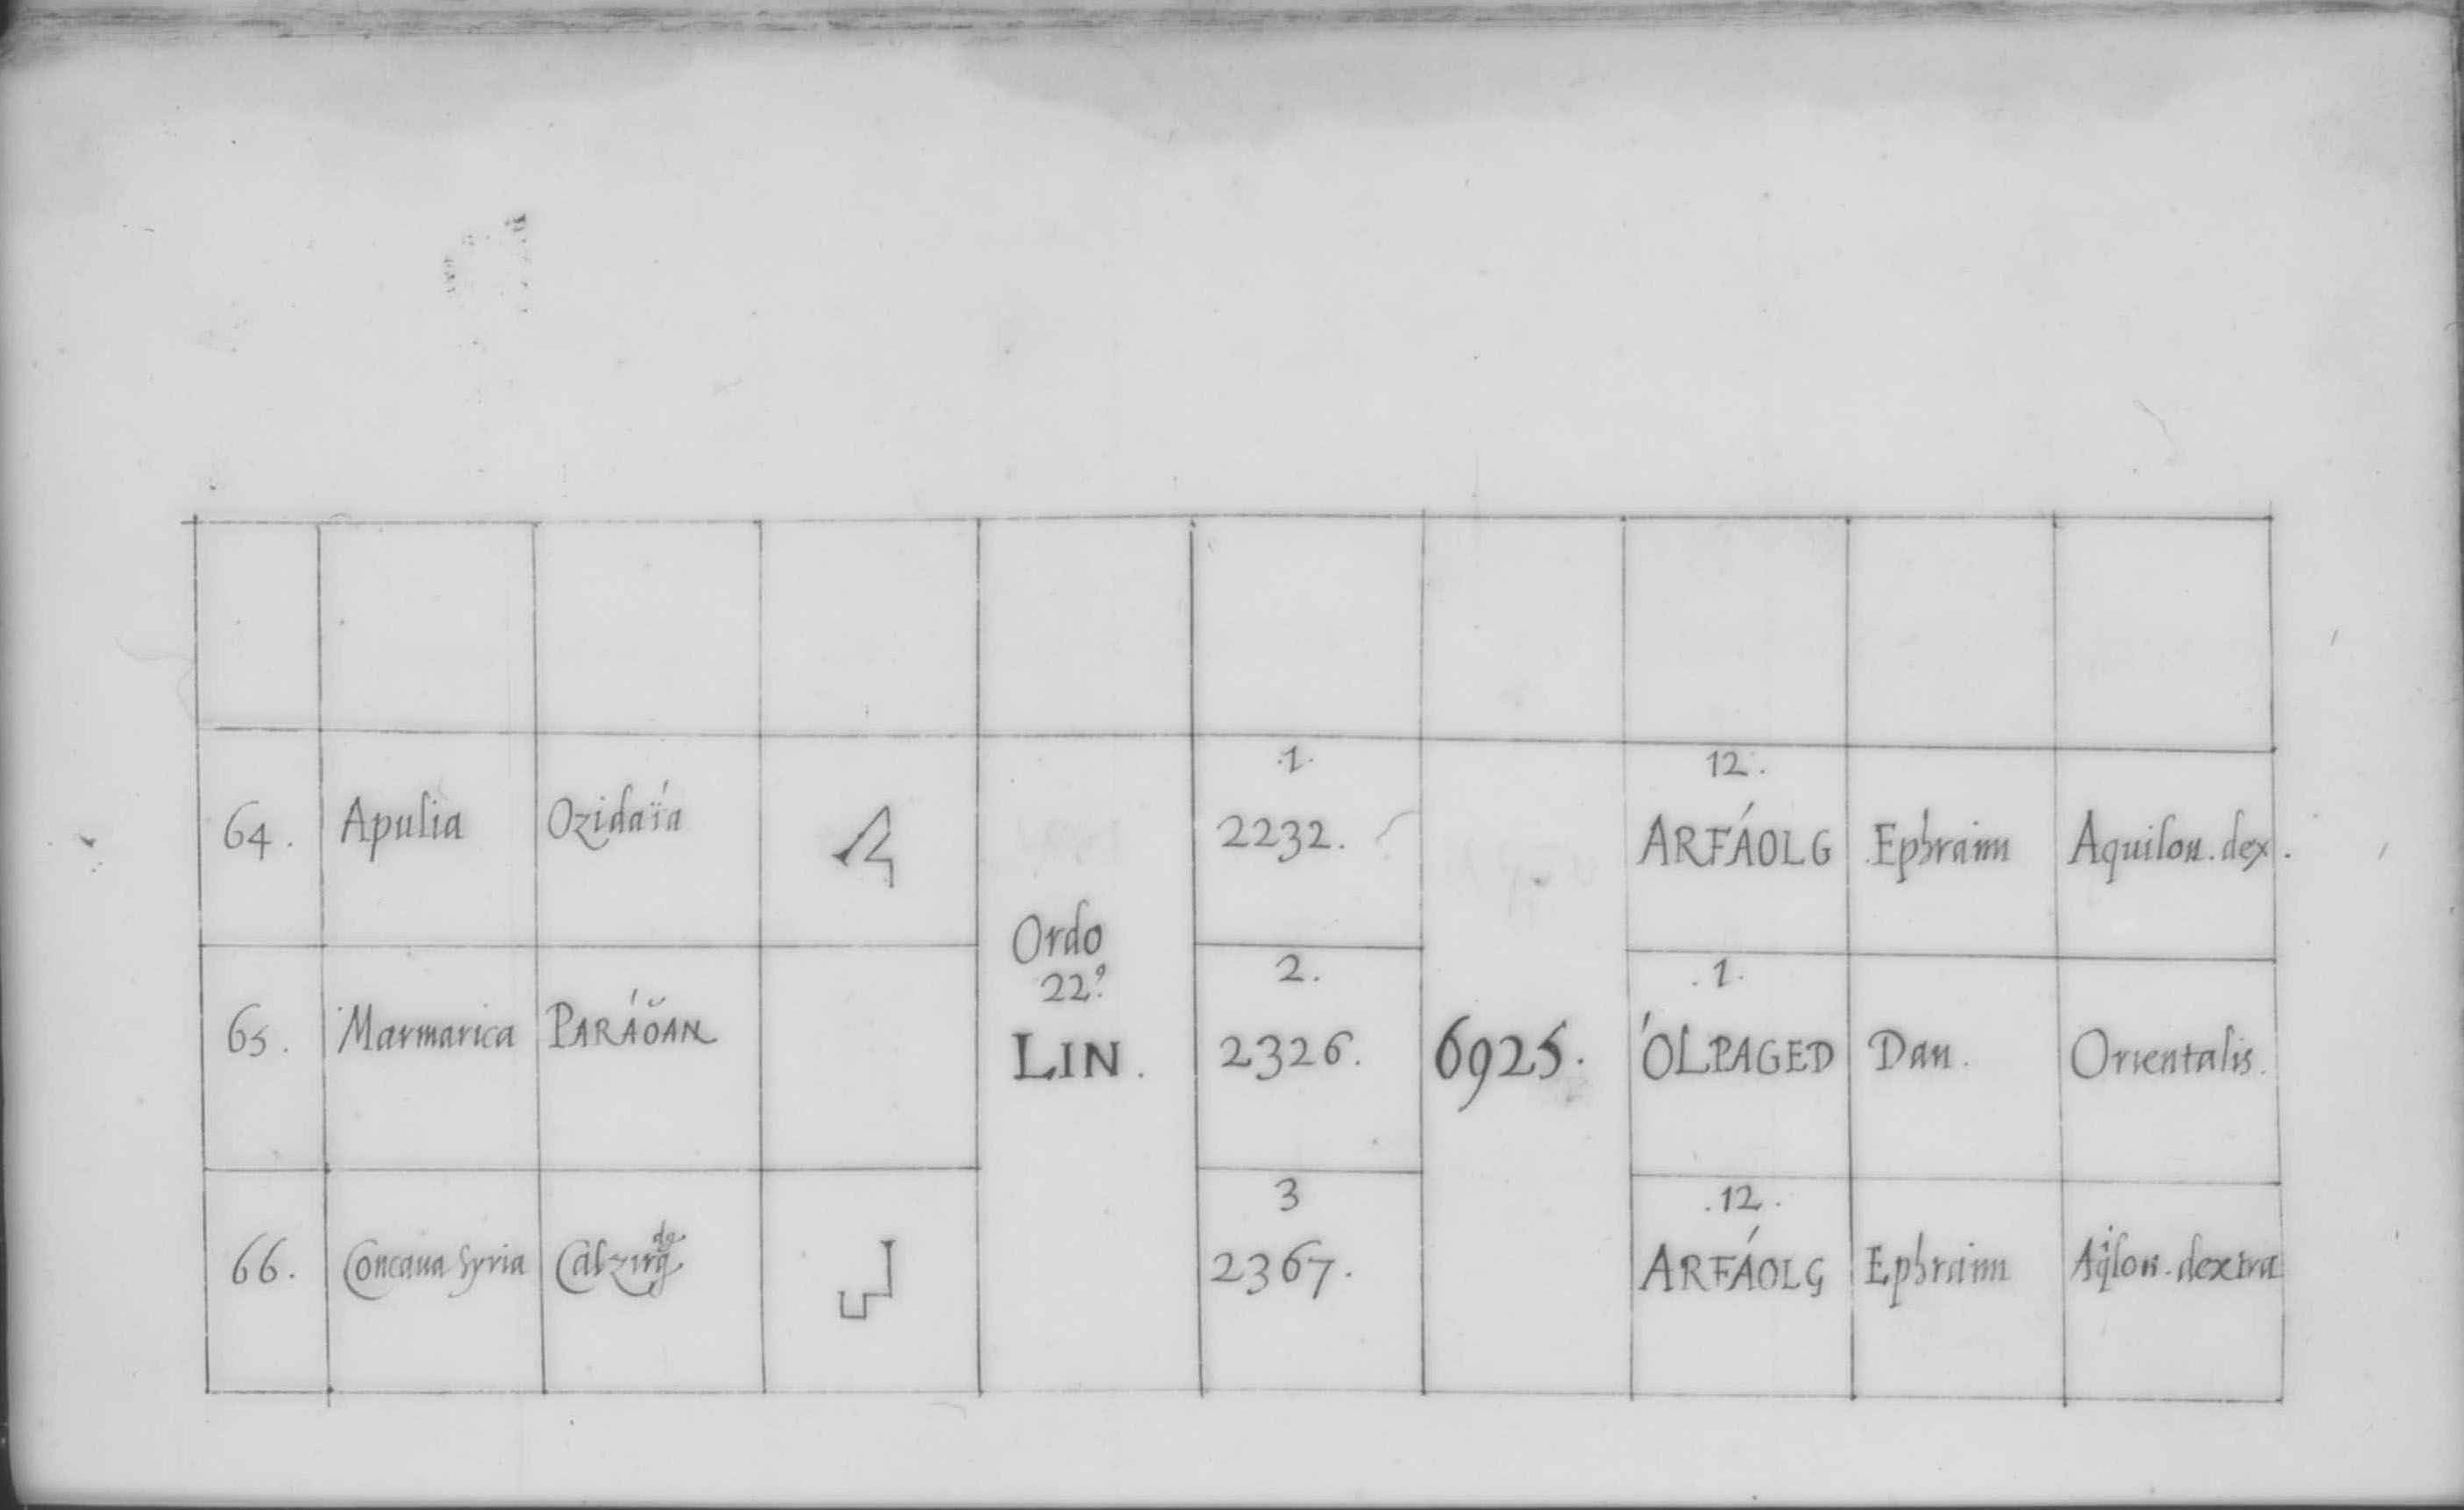 64. Apulia Ozidaïá .1. 2232. 12. ARFÁOLG Ephraim Aquilon. dex.
Ordo
22º.
LIN.
65. Marmarica PARÁŏAN 2. 2326. 6925. .1. ÓLPAGED Dan. Orientalis.
66. Concaua Syria Calzirg dg. 3 2367. .12. ARFÁOLG Ephraim Aq̇lon. dextra